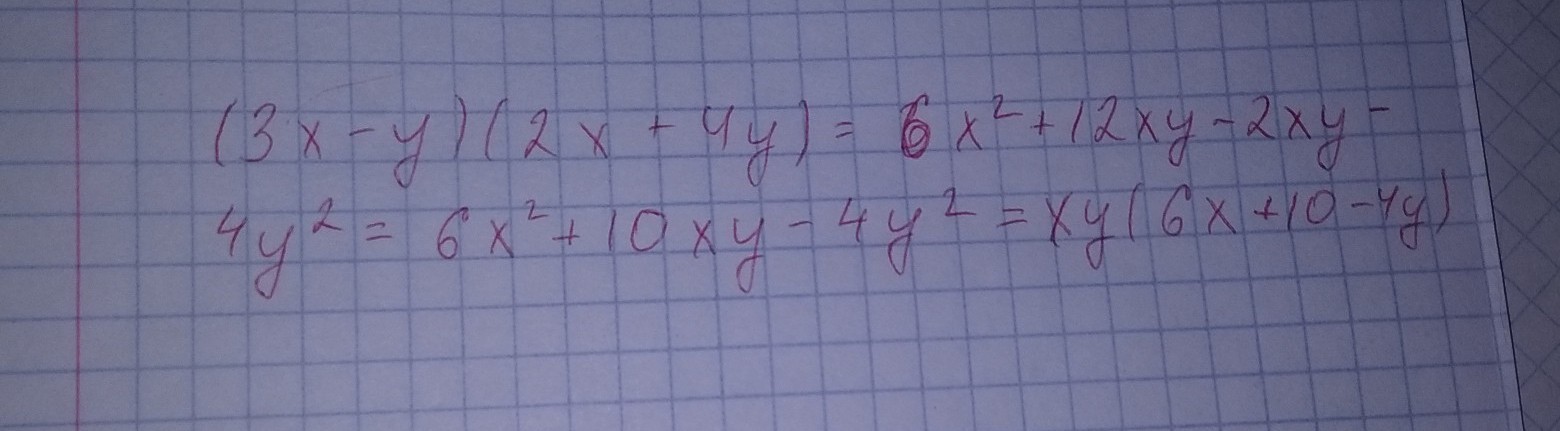 (3x-y)(2x+4y)= 6x²+12xy-2xy-
4y²= 6x²+10xy-4y²=xy(6x+10-4y)